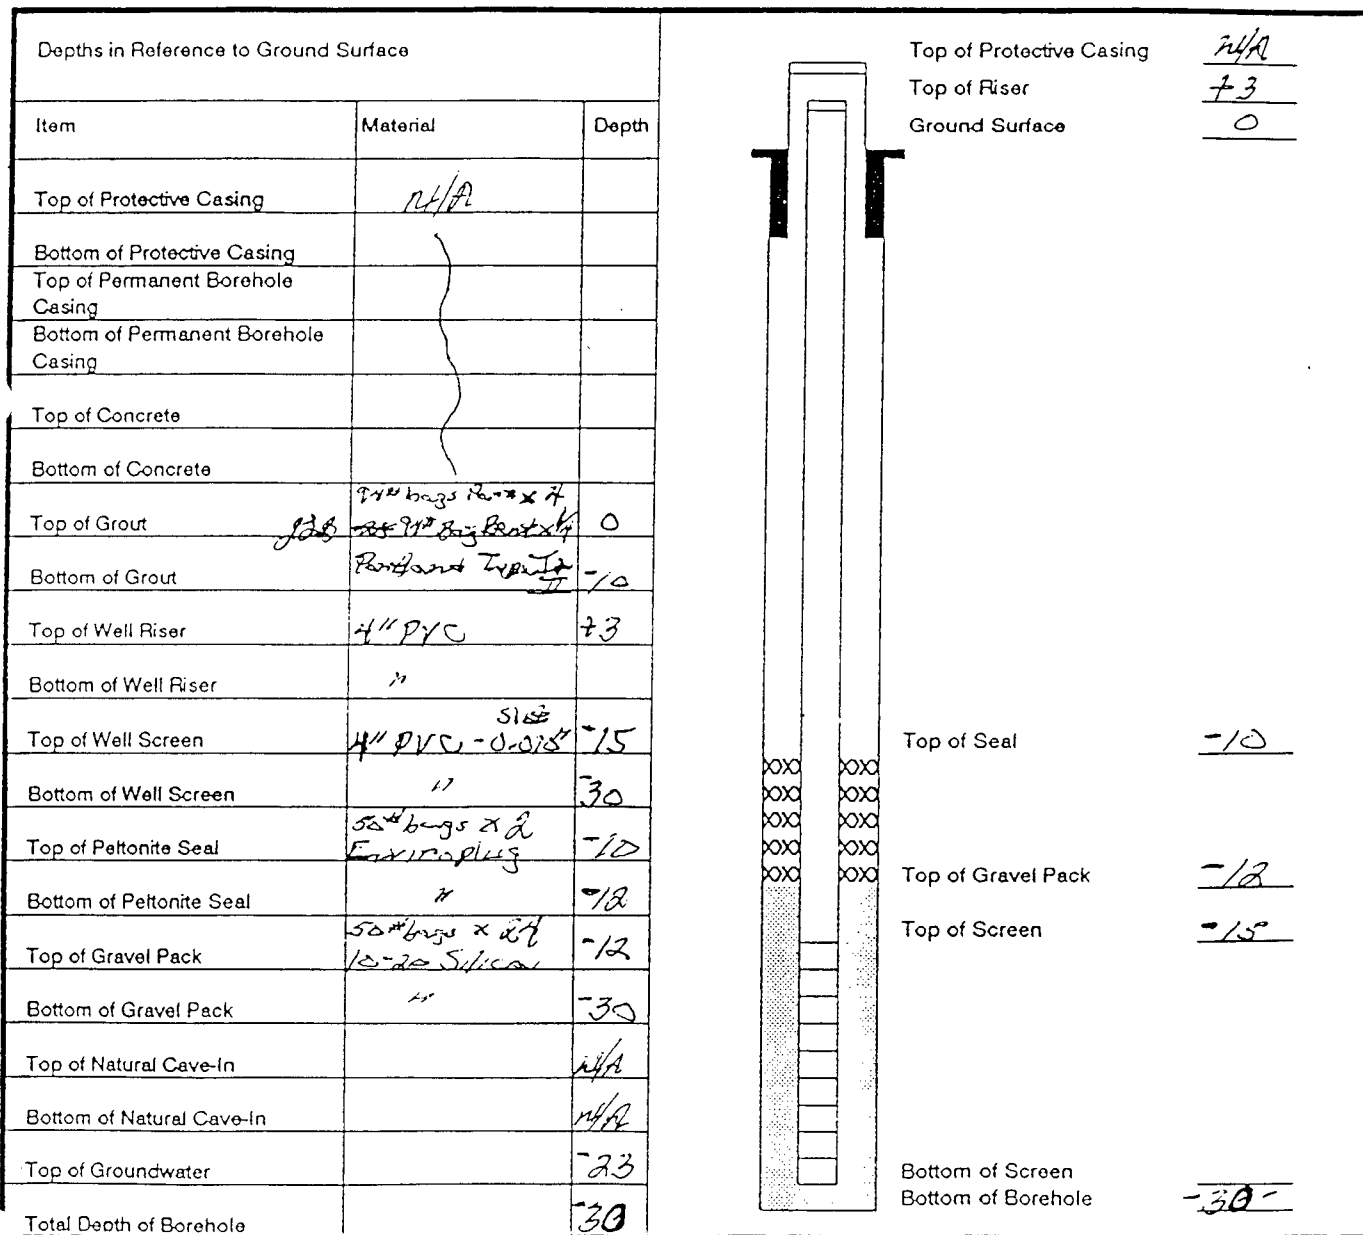 Depths in Reference to Ground Surface
Item Material Depth
Top of Protective Casing n/A
Bottom of Protective Casing
Top of Permanent Borehole
Casing
Bottom of Permanent Borehole
Casing
Top of Concrete
Bottom of Concrete
94# bags x 4
Top of Grout 94# Bag Bent x 1/4 0
Bottom of Grout Portland Type I & II -10
Top of Well Riser 4" PVC +3
Bottom of Well Riser "
Top of Well Screen 4" PVC -15
Bottom of Well Screen " -30
50# bags x 2
Top of Peltonite Seal Enviroplug -10
Bottom of Peltonite Seal " -12
50# bags x 24
Top of Gravel Pack 10-20 Silica -12
Bottom of Gravel Pack " -30
Top of Natural Cave-In n/A
Bottom of Natural Cave-In n/A
Top of Groundwater -23
Total Depth of Borehole -30
Top of Protective Casing n/A
Top of Riser +3
Ground Surface 0
Top of Seal -10
Top of Gravel Pack -12
Top of Screen -15
Bottom of Screen
Bottom of Borehole -30-